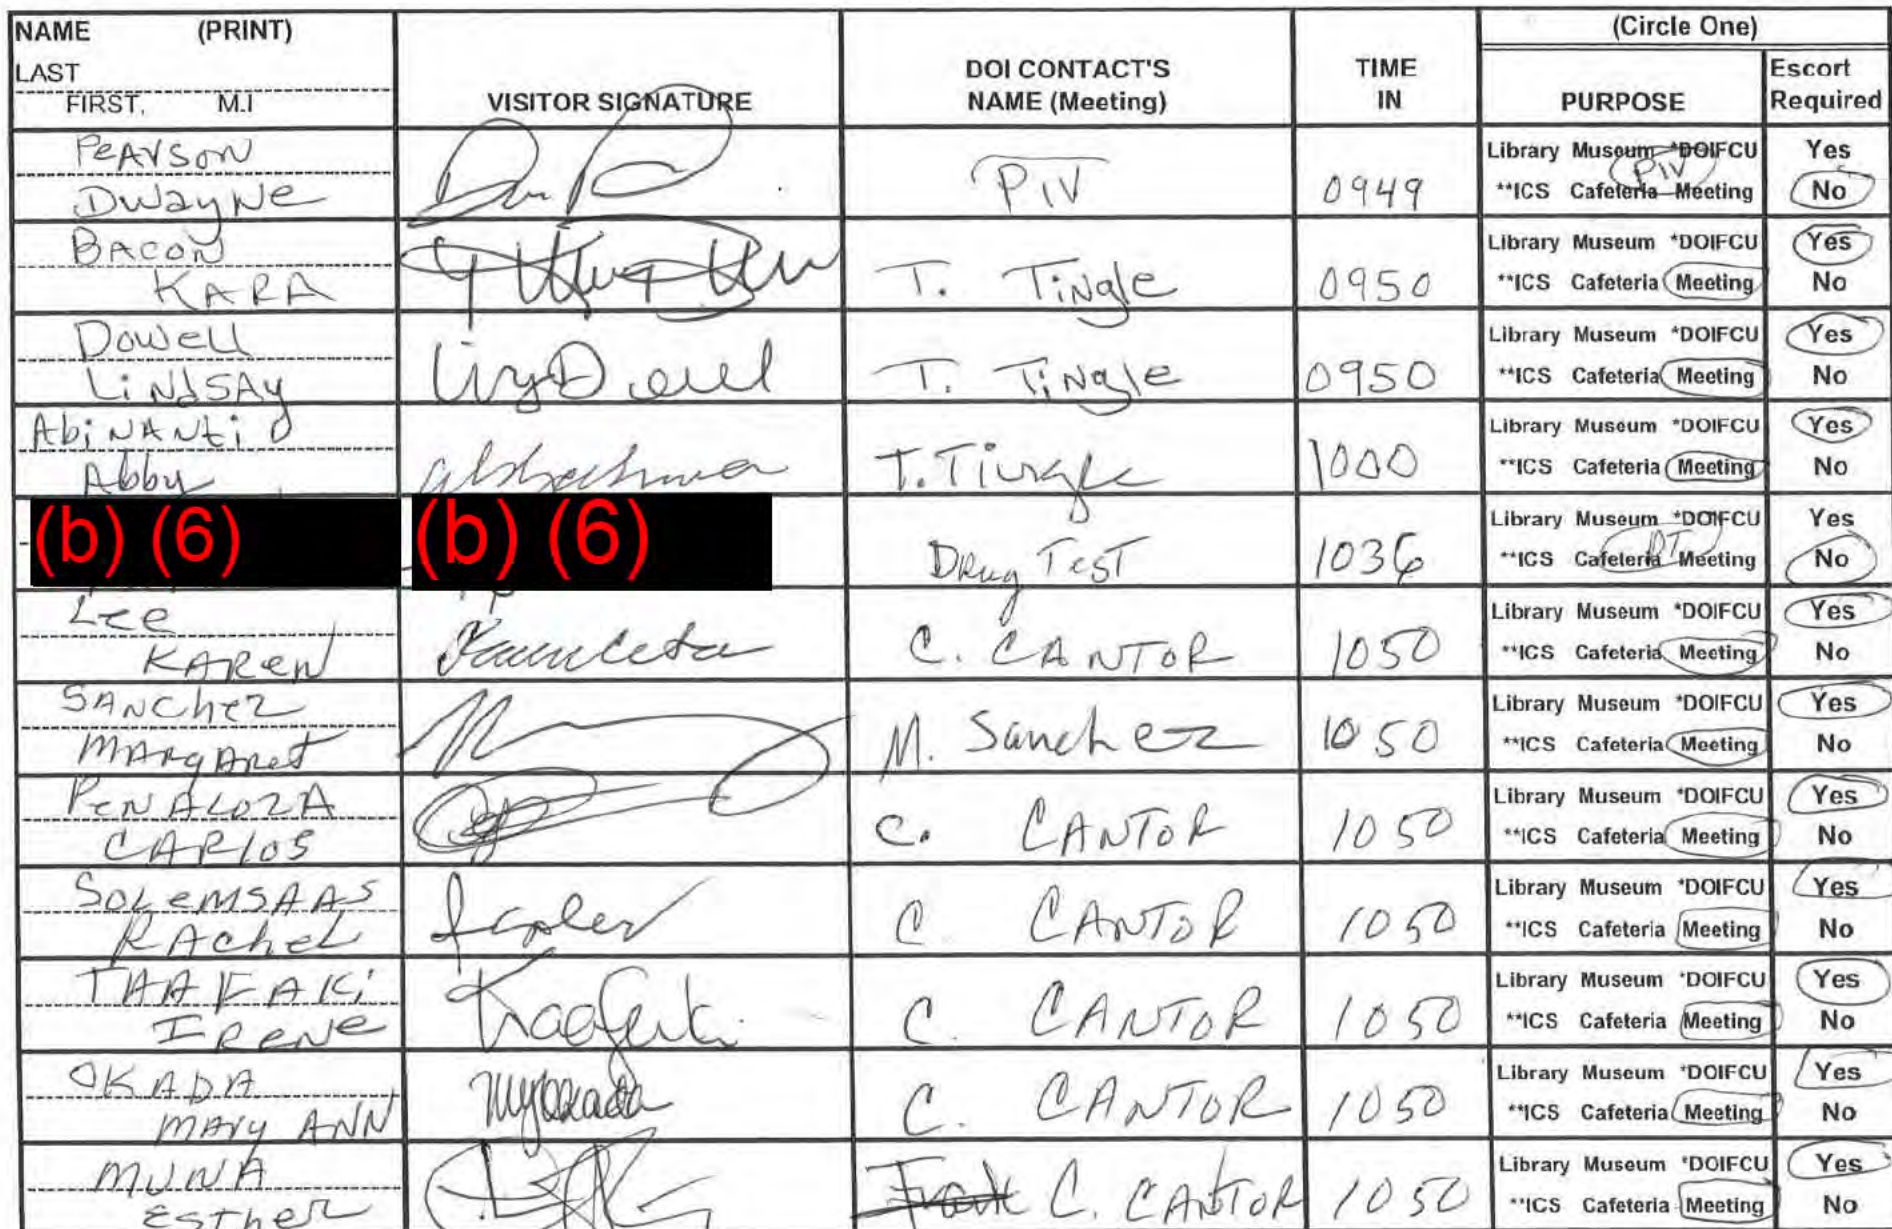 NAME (PRINT)
LAST
FIRST, M.I
VISITOR SIGNATURE
DOI CONTACT'S
NAME (Meeting)
TIME
IN
(Circle One)
PURPOSE
Escort
Required
PeArson
Dwayne
PIV
0949
Library Museum *DOIFCU Yes
PIV
**ICS Cafeteria Meeting No
BACON
KARA
T. Tingle
0950
Library Museum *DOIFCU Yes
**ICS Cafeteria Meeting No
Dowell
LiNdSAy
T. TiNgle
0950
Library Museum *DOIFCU Yes
**ICS Cafeteria Meeting No
AbiNANti
Abby
T. Tingle
1000
Library Museum *DOIFCU Yes
**ICS Cafeteria Meeting No
(b) (6)
(b) (6)
Drug Test
1036
Library Museum *DOIFCU Yes
DT
**ICS Cafeteria Meeting No
Lee
KAReN
C. CANTOR
1050
Library Museum *DOIFCU Yes
**ICS Cafeteria Meeting No
SANchez
MArgAret
M. Sanchez
1050
Library Museum *DOIFCU Yes
**ICS Cafeteria Meeting No
PeNALOZA
CARlOS
C. CANTOR
1050
Library Museum *DOIFCU Yes
**ICS Cafeteria Meeting No
SOLeMSAAS
RAcheL
C CANTOR
1050
Library Museum *DOIFCU Yes
**ICS Cafeteria Meeting No
TAAFAKi
IReNe
C. CANTOR
1050
Library Museum *DOIFCU Yes
**ICS Cafeteria Meeting No
OKADA
MAry ANN
C. CANTOR
1050
Library Museum *DOIFCU Yes
**ICS Cafeteria Meeting No
MUNA
EstheR
C. CANTOR
1050
Library Museum *DOIFCU Yes
**ICS Cafeteria Meeting No